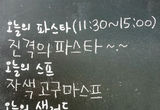 오늘의 파스타(11:30~15:00)
진격의파스타~~
오늘의 스프
자색고구마스프
오늘의 샐러드